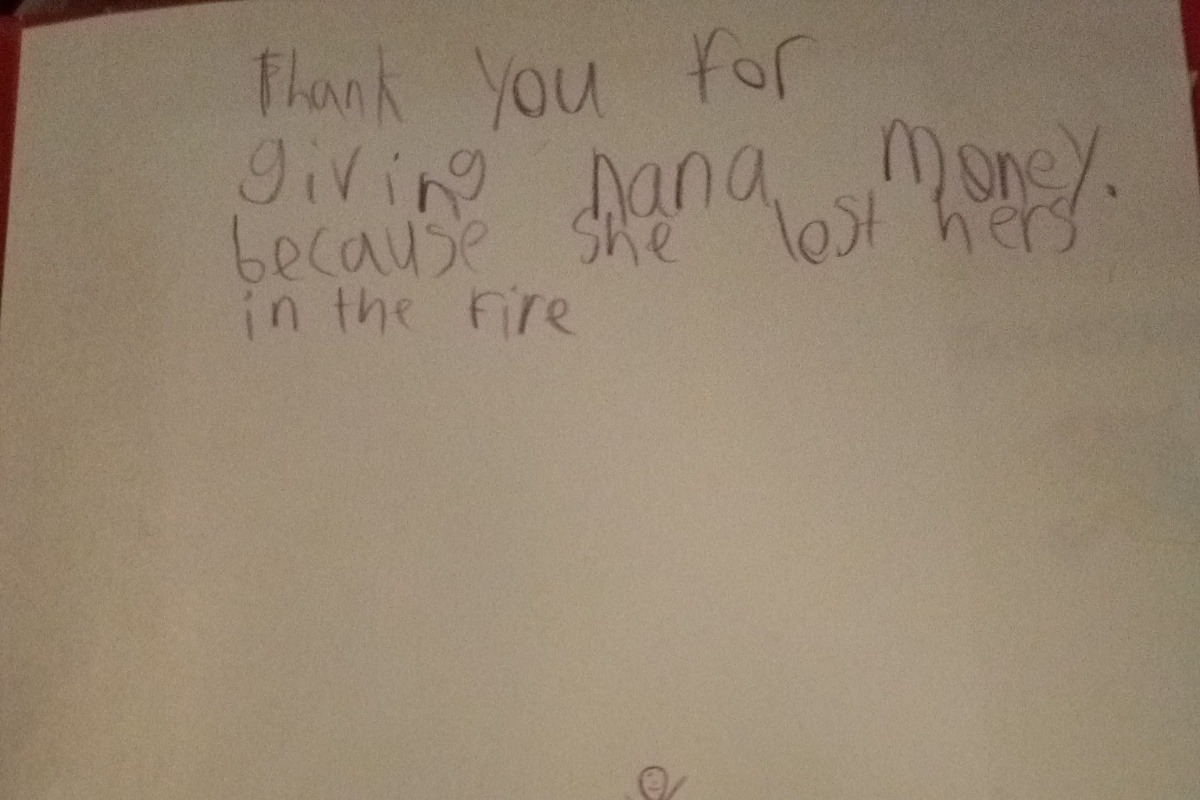 Thank you for
giving nana money.
because she lost hers
in the fire